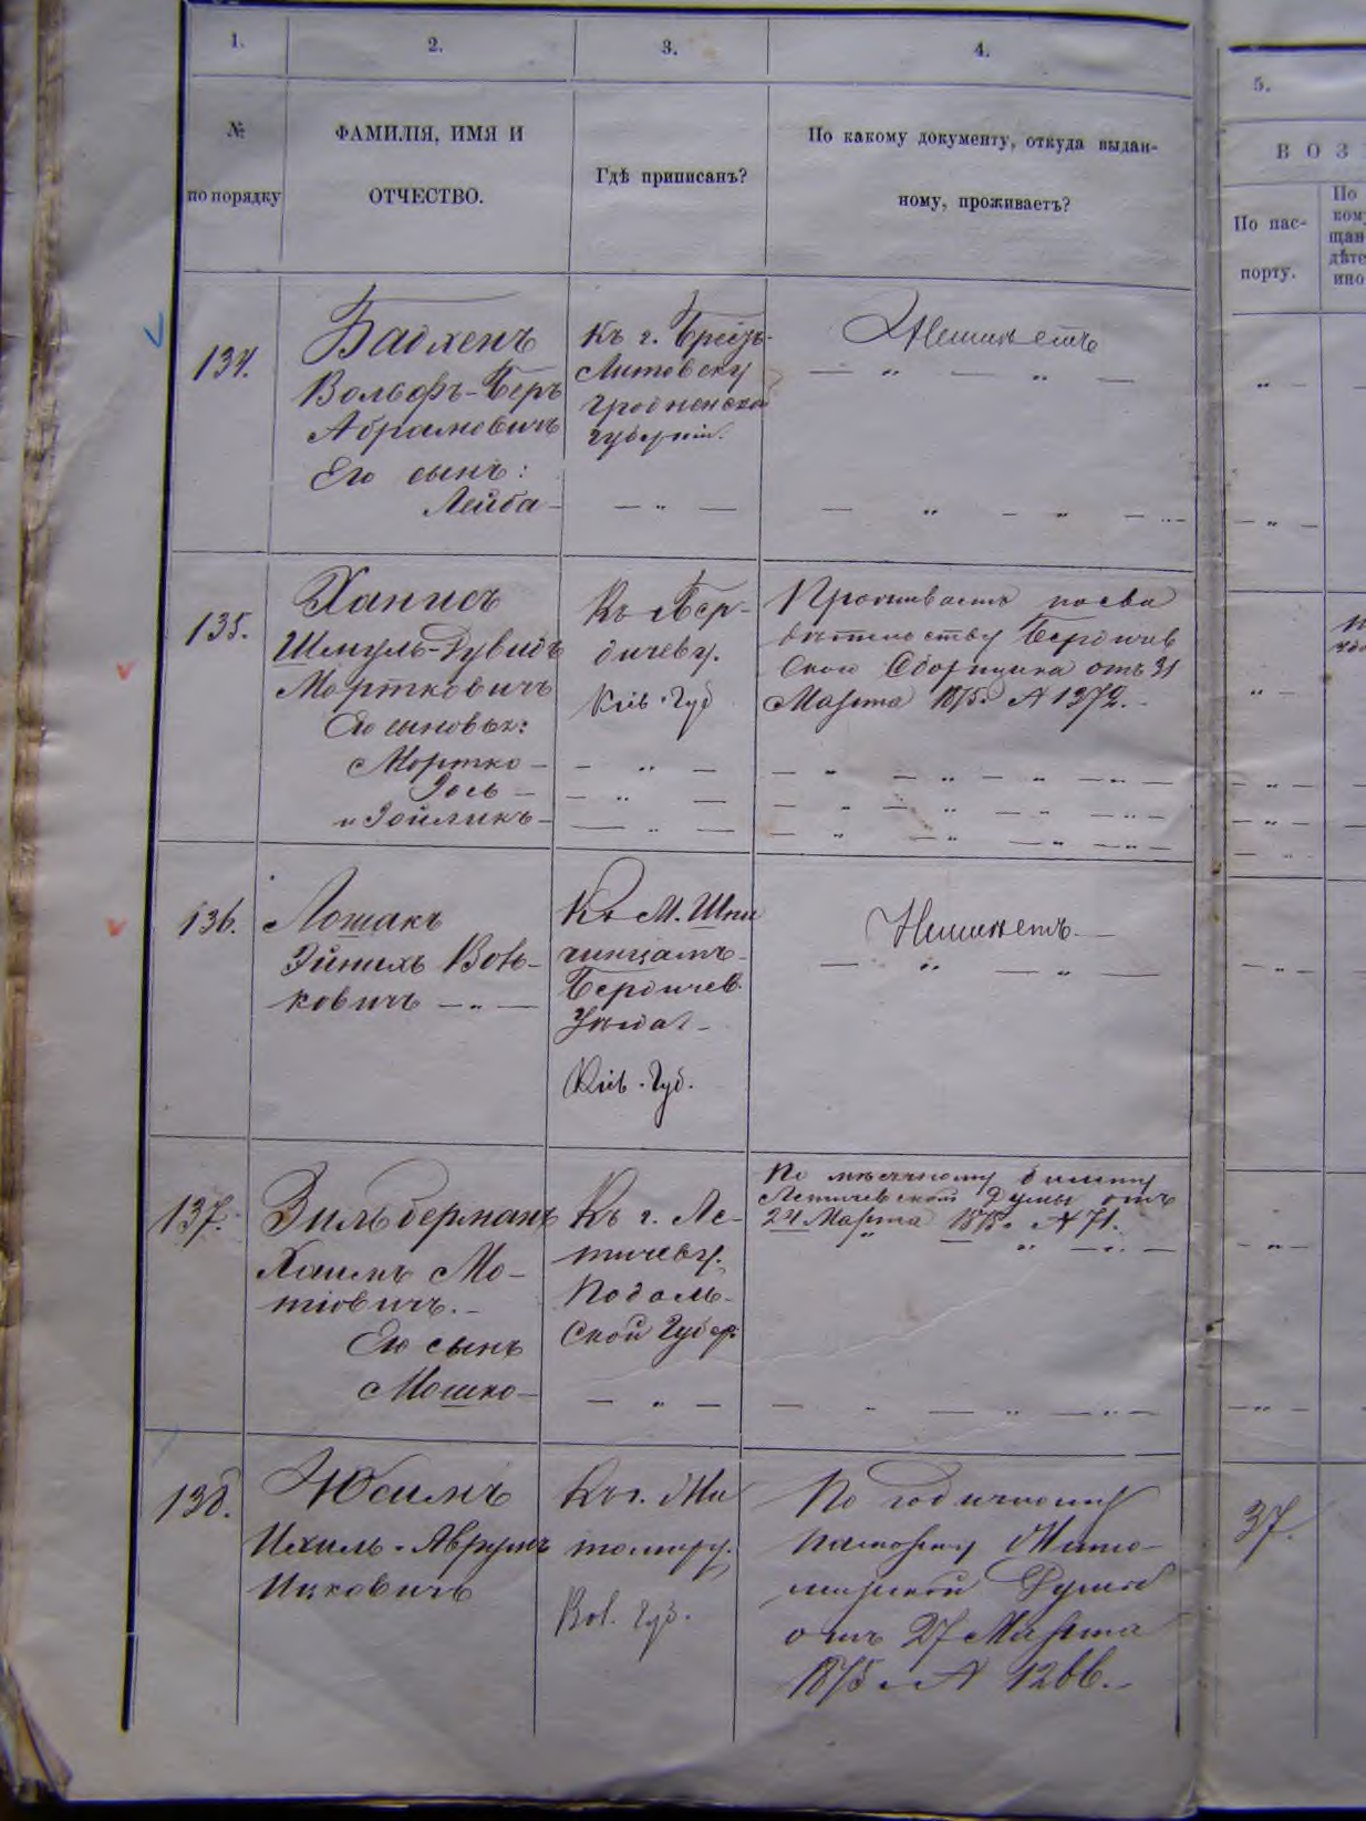 1.
2.
3.
4.
5.
№
по порядку
ФАМИЛІЯ, ИМЯ И
ОТЧЕСТВО.
Гдѣ приписанъ?
По какому документу, откуда выдан-
ному, проживаетъ?
ВОЗ
По пас-
порту.
По
ком
щан
дѣте
ино
134.
Бадхенъ
Вольфъ-Беръ
Абрамовичъ
Его сынъ:
Лейба
Къ г. Брестъ-
Литовску
Гродненской
Губерніи.
Неимѣетъ
135.
Ханисъ
Шмуль-Дувидъ
Мортковичъ
Его сыновья:
Мортко
Іось
и Зейликъ
Къ Бер-
дичеву.
Кіев. Губ
Проживаетъ по сви
дѣтельству Бердичев
скаго Сборщика отъ 31
Марта 1875 № 1372.
136.
Лошакъ
Эйнихъ Вов-
ковичъ
Къ М.
Бердичев.
Уѣзда
Кіев. Губ.
Неимѣетъ
137.
Зильберманъ
Хаимъ Мо-
тіовичъ.
Его сынъ
Мошко
Къ г. Ле-
тичеву.
Подоль-
ской Губер.
По мѣсячному билету
Летичевской Думы отъ
24 Марта 1875 № 71.
138.
Юсимъ
Ихиль-Аврумъ
Ицковичъ
Къ г. Жи
томиру.
Вол. Губ.
По годичному
паспорту Жито-
мирской Думы
отъ 27 Марта
1875 № 1266.
37.